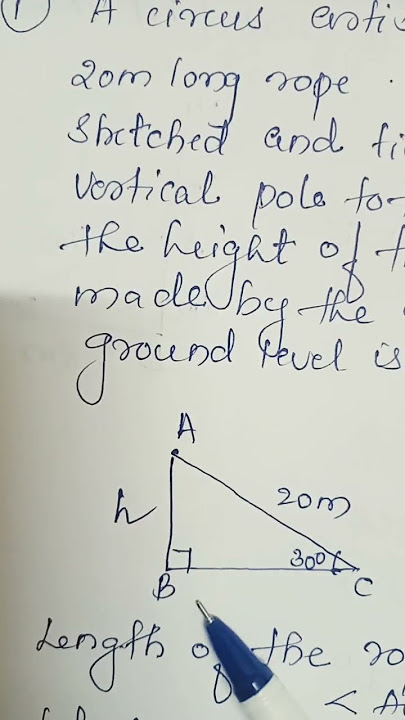 ① A circus
20m long rope.
Stretched and
vertical pole
the height of
made by the
ground level is
A
h
20m
30°
B
C
Length of the
< A